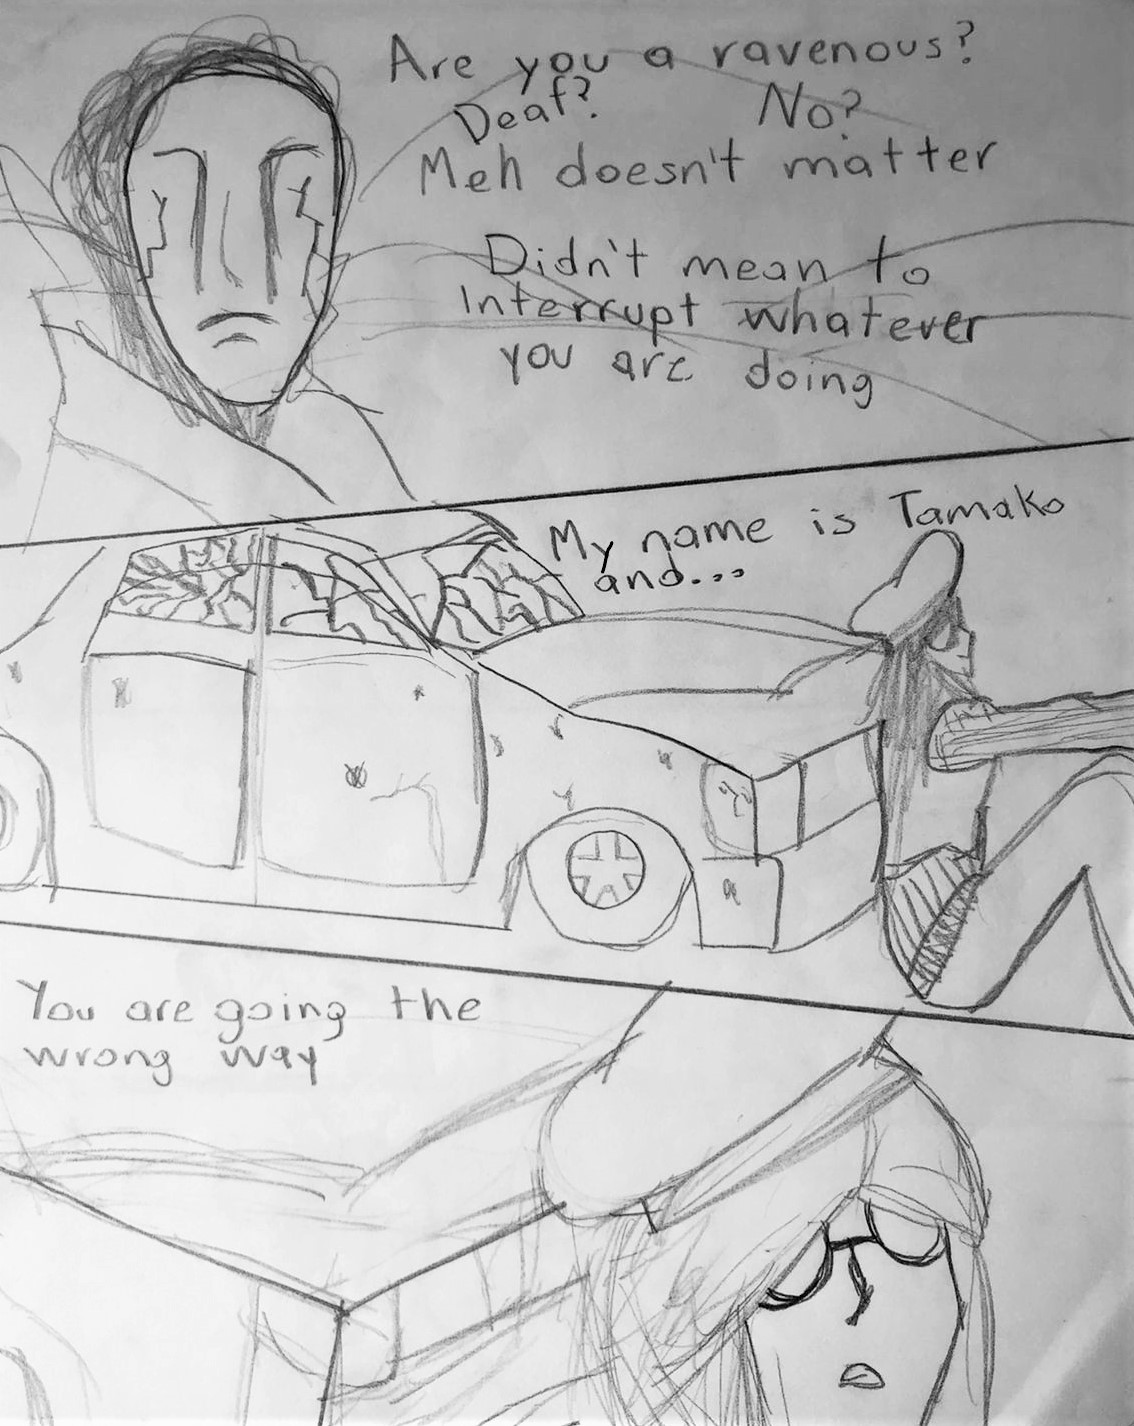 Are you a ravenous?
Deaf? No?
Meh doesn't matter
Didn't mean to
Interrupt whatever
you are doing
My name is Tamako
and...
You are going the
wrong way